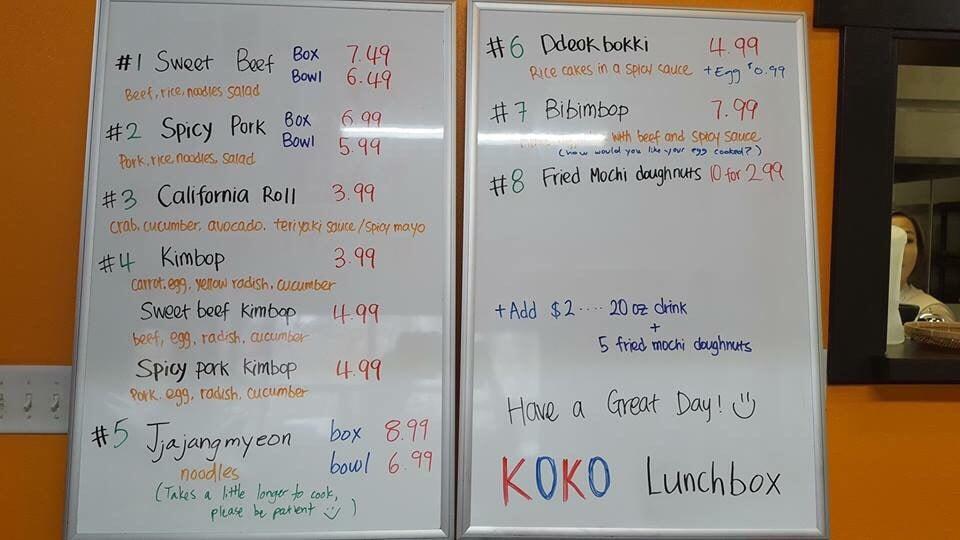 #1 Sweet Beef Box 7.49
Bowl 6.49
Beef, rice, noodles salad
#2 Spicy Pork Box 6.99
Bowl 5.99
Pork, rice, noodles, salad
#3 California Roll 3.99
Crab, cucumber, avocado, teriyaki sauce/spicy mayo
#4 Kimbop 3.99
carrot, egg, yellow radish, cucumber
Sweet beef kimbop 4.99
beef, egg, radish, cucumber
Spicy pork kimbop 4.99
Pork, egg, radish, cucumber
#5 Jjajangmyeon box 8.99
bowl 6.99
noodles
(Takes a little longer to cook,
please be patient )
#6 Ddeokbokki 4.99
Rice cakes in a spicy sauce +Egg $0.99
#7 Bibimbop 7.99
with beef and spicy sauce
(how would you like your egg cooked?)
#8 Fried Mochi doughnuts 10 for 2.99
+Add $2.... 20 oz drink
+
5 fried mochi doughnuts
Have a Great Day!
KOKO Lunchbox